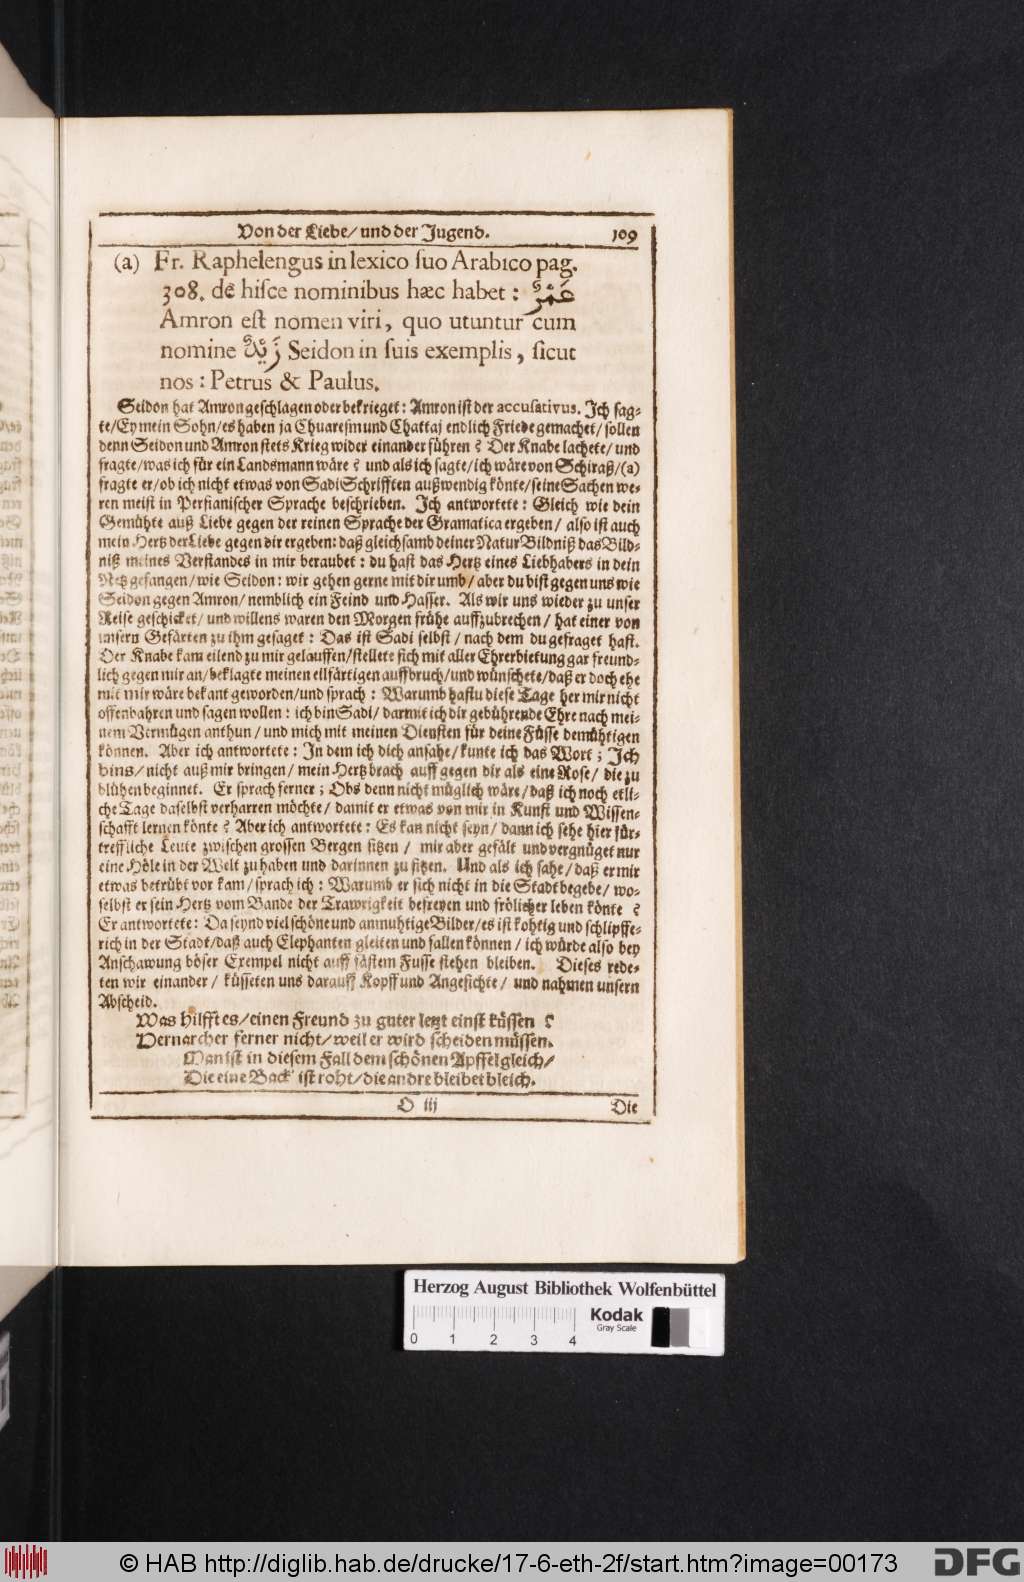 Von der Liebe/ und der Jugend. 109
(a) Fr. Raphelengus in lexico ſuo Arabico pag.
308. dē hiſce nominibus hæc habet : عَمْرٌو
Amron eſt nomen viri, quo utuntur cum
nomine زَيْدٌ Seidon in ſuis exemplis, ſicut
nos : Petrus & Paulus.
Seidon hat Amron geſchlagen oder bekrieget: Amron iſt der accuſativus. Ich ſag-
te/ Ey mein Sohn/ es haben ja Chuareſm und Chattaj endlich Friede gemachet/ ſollen
denn Seidon und Amron ſtets Krieg wider einander führen ? Der Knabe lachete/ und
fragte/ was ich für ein Landsmann wäre ? und als ich ſagte/ ich wäre von Schiraß/ (a)
fragte er/ ob ich nicht etwas von Sadi Schrifften außwendig könte/ ſeine Sachen we-
ren meiſt in Perſianiſcher Sprache beſchrieben. Ich antwortete : Gleich wie dein
Gemühte auß Liebe gegen der reinen Sprache der Gramatica ergeben/ alſo iſt auch
mein Hertz der Liebe gegen dir ergeben: daß gleichſamb deiner Natur Bildniß das Bild-
niß meines Verſtandes in mir beraubet : du haſt das Hertz eines Liebhabers in dein
Netz gefangen/ wie Seidon : wir gehen gerne mit dir umb/ aber du biſt gegen uns wie
Seidon gegen Amron/ nemblich ein Feind und Haſſer. Als wir uns wieder zu unſer
Reiſe geſchicket/ und willens waren den Morgen frühe auffzubrechen/ hat einer von
unſern Gefärten zu ihm geſaget : Das iſt Sadi ſelbſt/ nach dem du gefraget haſt.
Der Knabe kam eilend zu mir gelauffen/ ſtellete ſich mit aller Ehrerbietung gar freund-
lich gegen mir an/ beklagte meinen ellfärtigen auffbruch/ und wünſchete/ daß er doch ehe
mit mir wäre bekant geworden/ und ſprach : Warumb haſtu dieſe Tage her mir nicht
offenbahren und ſagen wollen : ich bin Sadi/ darmit ich dir gebührende Ehre nach mei-
nem Vermügen anthun/ und mich mit meinen Dienſten für deine Füſſe demühtigen
können. Aber ich antwortete : In dem ich dich anſahe/ kunte ich das Wort ; Ich
bins/ nicht auß mir bringen/ mein Hertz brach auff gegen dir als eine Roſe/ die zu
blühen beginnet. Er ſprach ferner ; Obs denn nicht müglich wäre/ daß ich noch etli-
che Tage daſelbſt verharren möchte/ damit er etwas von mir in Kunſt und Wiſſen-
ſchafft lernen könte ? Aber ich antwortete : Es kan nicht ſeyn/ dann ich ſehe hier für-
treffliche Leute zwiſchen groſſen Bergen ſitzen/ mir aber gefält und vergnüget nur
eine Höle in der Welt zu haben und darinnen zu ſitzen. Und als ich ſahe/ daß er mir
etwas betrübt vor kam/ ſprach ich : Warumb er ſich nicht in die Stadt begebe/ wo-
ſelbſt er ſein Hertz vom Bande der Trawrigkeit befreyen und frölicher leben könte ?
Er antwortete: Da ſeynd viel ſchöne und anmuhtige Bilder/ es iſt kohtig und ſchlipffe-
rich in der Stadt/ daß auch Elephanten gleiten und fallen können/ ich würde alſo bey
Anſchawung böſer Exempel nicht auff fäſtem Fuſſe ſtehen bleiben. Dieſes rede-
ten wir einander/ küſſeten uns darauff Kopff und Angeſichte/ und nahmen unſern
Abſcheid.
Was hilfft es/ einen Freund zu guter letzt einſt küſſen ?
Dernarcher ferner nicht/ weil er wird ſcheiden müſſen.
Man iſt in dieſem Fall dem ſchönen Apffel gleich/
Die eine Back' iſt roht/ die andre bleibet bleich.
O iij Die
Herzog August Bibliothek Wolfenbüttel
Kodak
Gray Scale
0 1 2 3 4
© HAB http://diglib.hab.de/drucke/17-6-eth-2f/start.htm?image=00173
DFG